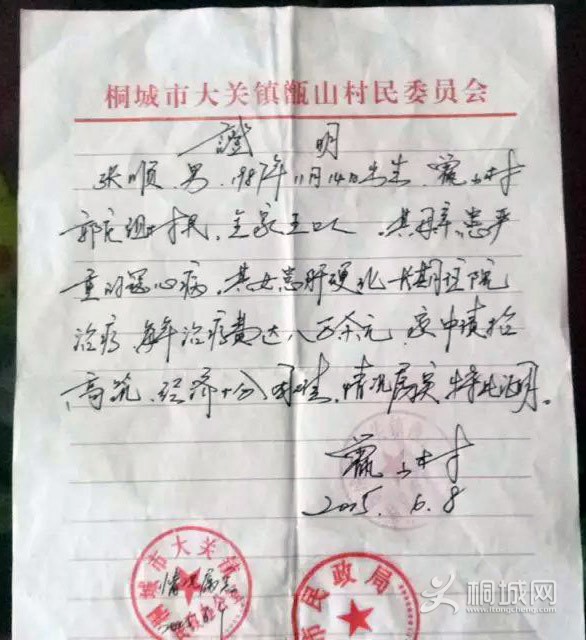 桐城市大关镇甑山村民委员会
證 明
张顺,男,1987年11月14日出生,甑山村
郭庄组村民,全家五口人,其母亲患严
重的冠心病,其女患肝硬化长期住院
治疗,每年治疗费达八万余元,
高筑,经济十分困难,情况属实,特此证明。
甑山村
2015.6.8
桐城市大关镇
情况属实
市民政局
桐城网
www.itongcheng.com